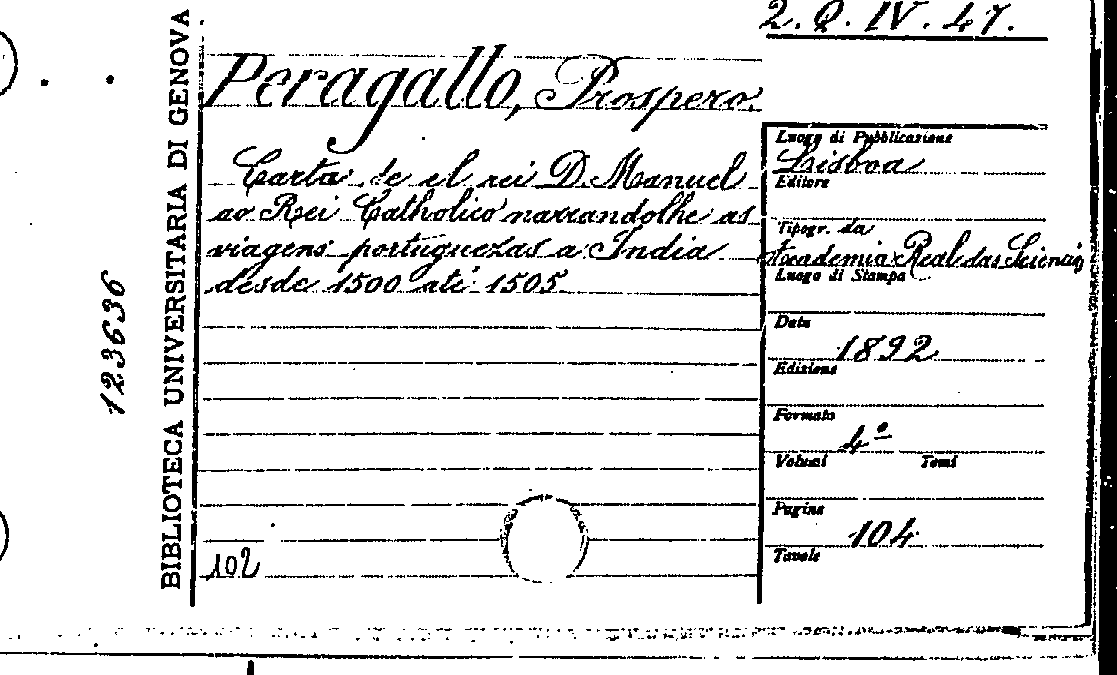 2. Q. IV. 47.
BIBLIOTECA UNIVERSITARIA DI GENOVA
123636
Peragallo, Prospero.
Carta de el rei D. Manuel
ao Rei Catholico narrandolhe as
viagens portuguezas a India
desde 1500 até 1505
102
Luogo di Pubblicazione
Lisboa
Editore
Tipogr. da
Academia Real das Sciencias
Luogo di Stampa
Data
1892
Edizione
Formato
4º
Volumi Tomi
Pagine
104
Tavole